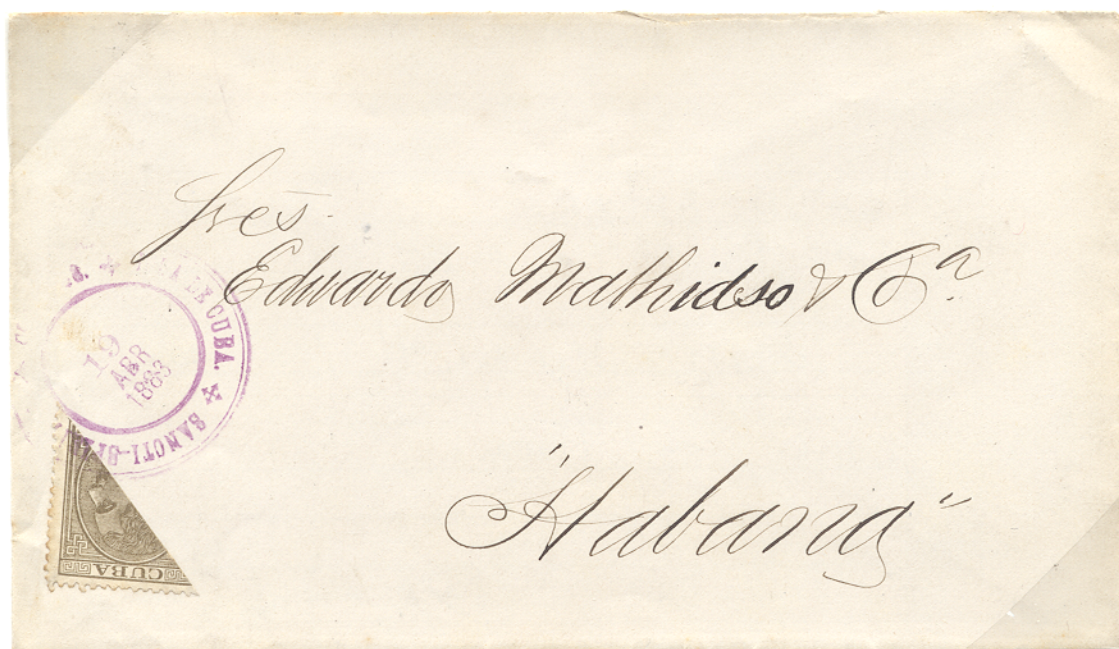 Sres
Eduardo Mathidso & Cª
"Habana"
DE CUBA. SANCTI-
19
ABR
1883
CUBA